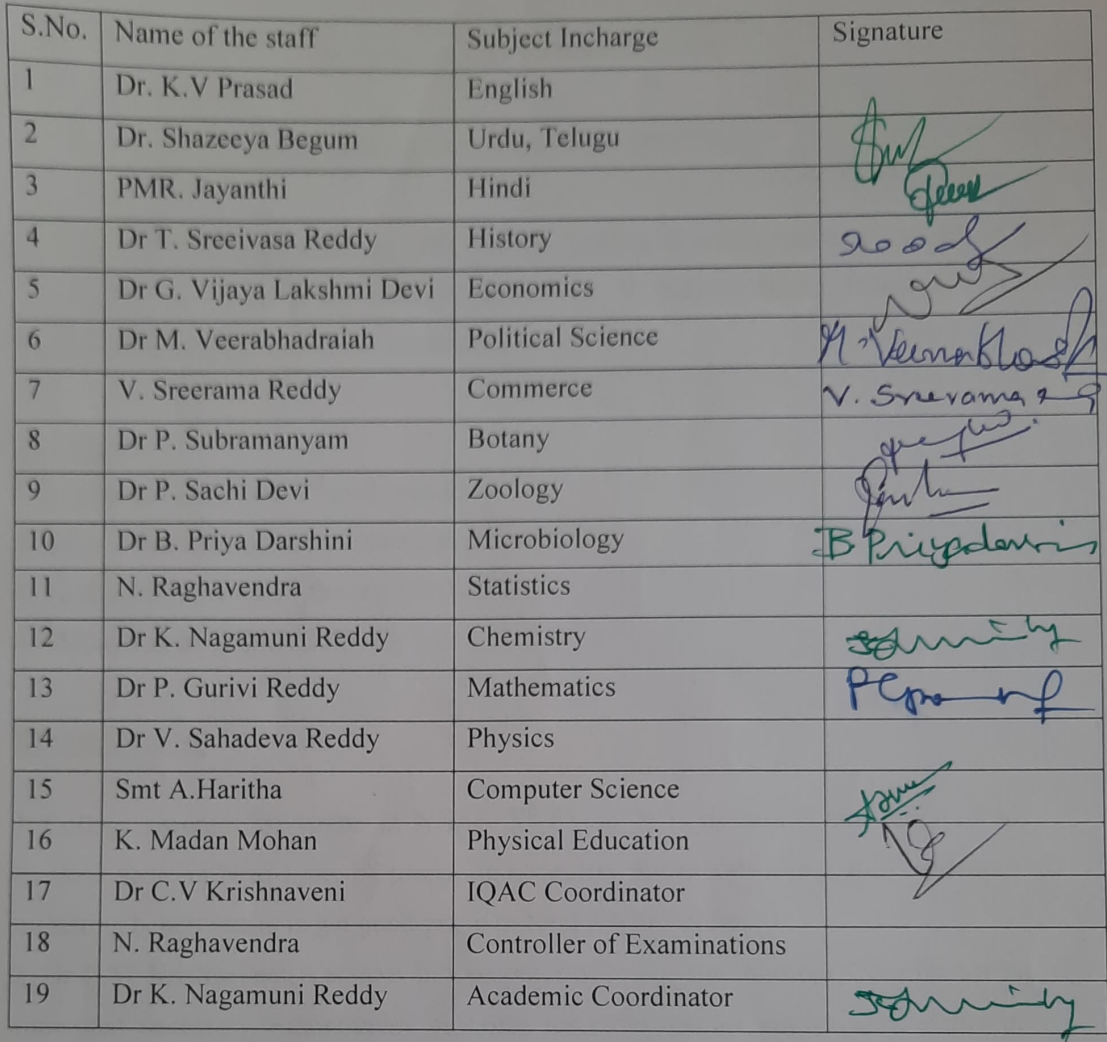 S.No. Name of the staff Subject Incharge Signature
1 Dr. K.V Prasad English
2 Dr. Shazeeya Begum Urdu, Telugu
3 PMR. Jayanthi Hindi
4 Dr T. Sreeivasa Reddy History
5 Dr G. Vijaya Lakshmi Devi Economics
6 Dr M. Veerabhadraiah Political Science
7 V. Sreerama Reddy Commerce V. Sreerama
8 Dr P. Subramanyam Botany
9 Dr P. Sachi Devi Zoology
10 Dr B. Priya Darshini Microbiology
11 N. Raghavendra Statistics
12 Dr K. Nagamuni Reddy Chemistry
13 Dr P. Gurivi Reddy Mathematics
14 Dr V. Sahadeva Reddy Physics
15 Smt A.Haritha Computer Science
16 K. Madan Mohan Physical Education
17 Dr C.V Krishnaveni IQAC Coordinator
18 N. Raghavendra Controller of Examinations
19 Dr K. Nagamuni Reddy Academic Coordinator